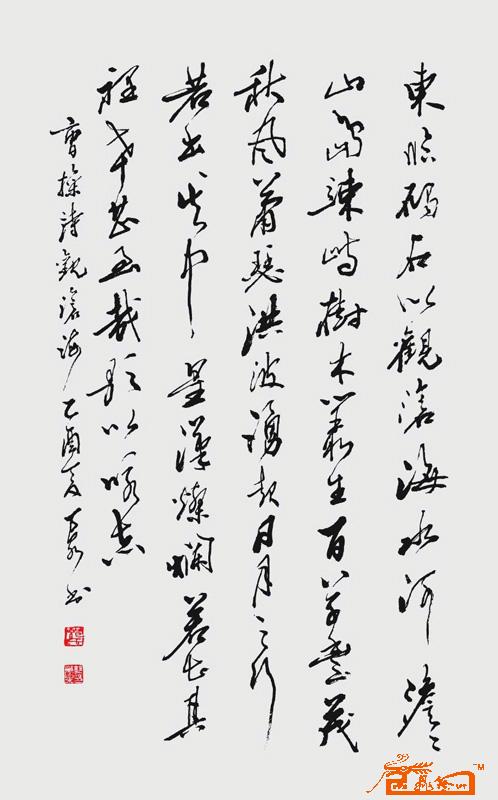 東臨碣石以觀滄海水何澹々
山島竦峙樹木叢生百草豐茂
秋風蕭瑟洪波湧起日月之行
若出其中星漢燦爛若出其
裡幸甚至哉歌以詠志
曹操詩觀滄海乙酉夏书